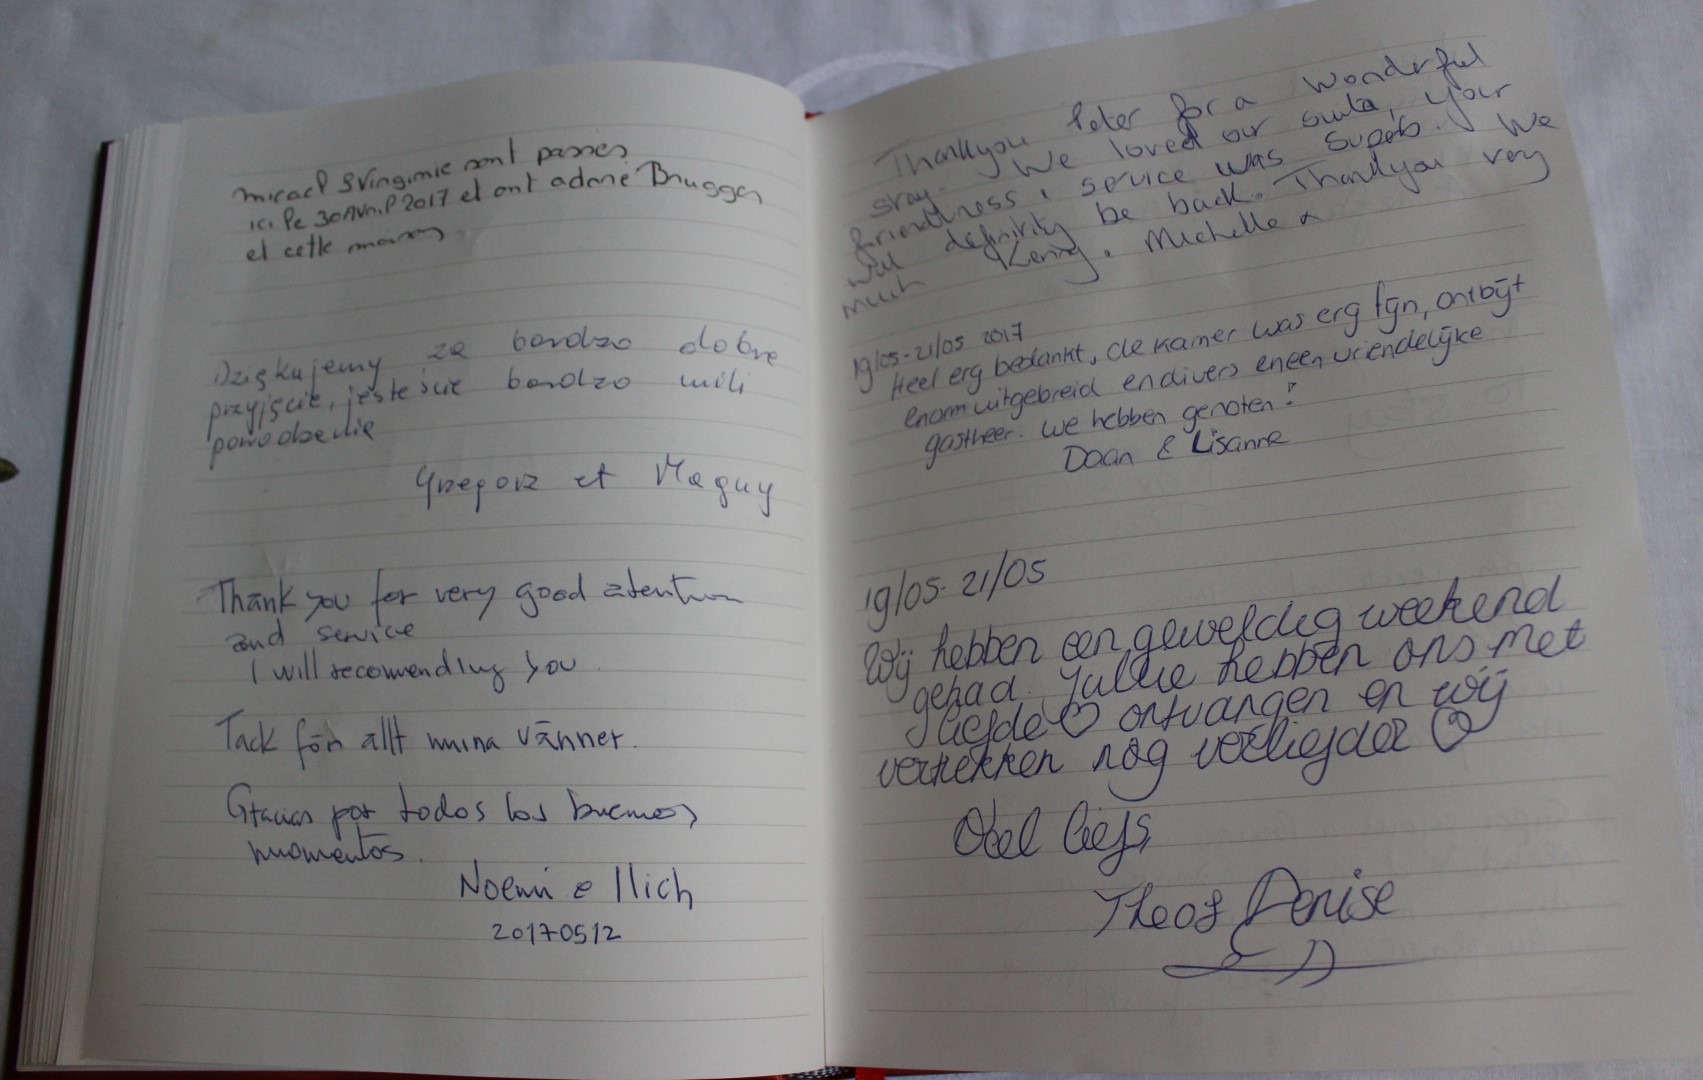 micael & Vingimie sont passés
ici le 30 Avril 2017 et ont adoré Brugges
et cette maison
Dziękujemy za bardzo dobre
przyjęcie, jesteście bardzo mili
powodzenia
Grzegorz et Maguy
Thank you for very good atention
and service
I will recomending you.
Tack för allt mina vänner.
Gracias por todos los buenos
momentos.
Noemi e Ilich
20170512
Thankyou Peter for a wonderful
stay. We loved our suite, your
friendlness & service was superb. We
will definitly be back. Thankyou very
much Kerry. Michelle x
19/05-21/05 2017
Heel erg bedankt, de kamer was erg fijn, ontbijt
enorm uitgebreid en divers en een vriendelijke
gastheer. We hebben genoten!
Daan & Lisanne
19/05-21/05
Wij hebben een geweldig weekend
gehad. Jullie hebben ons met
liefde ♡ ontvangen en wij
vertrekken nog verliefder ♡
Veel liefs,
Theo & Denise